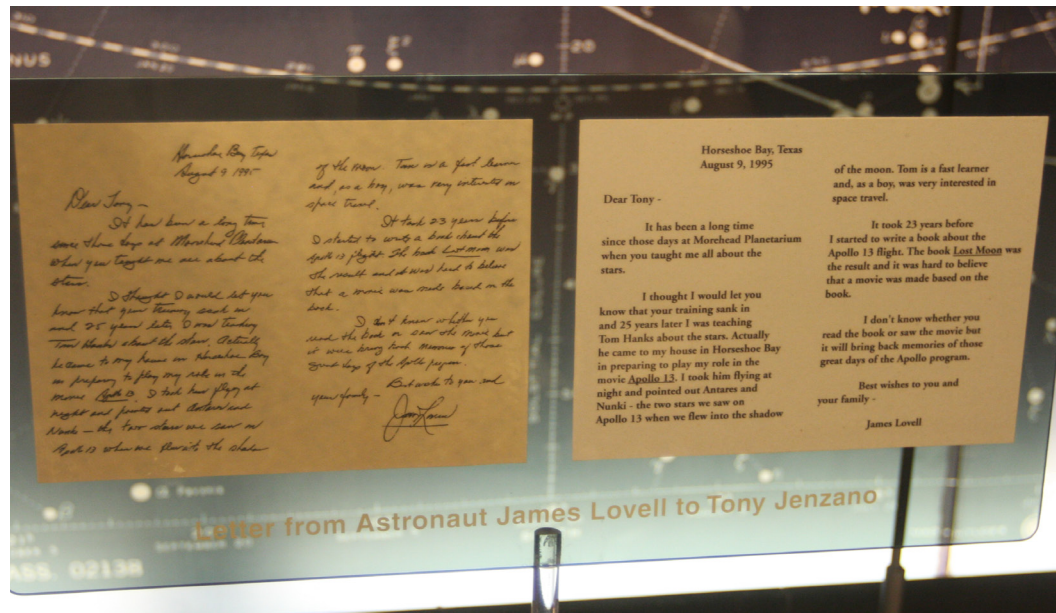 NUS
-20
Horseshoe Bay, Texas
August 9 1995
Dear Tony -
It has been a long time
since those days at Morehead Planetarium
when you taught me all about the
stars.
I thought I would let you
know that your training sank in
and 25 years later I was teaching
Tom Hanks about the stars. Actually
he came to my home in Horseshoe Bay
in preparing to play my role in the
movie Apollo 13. I took him flying at
night and pointed out Antares and
Nunki - the two stars we saw on
Apollo 13 when we flew into the shadow
of the moon. Tom is a fast learner
and, as a boy, was very interested in
space travel.
It took 23 years before
I started to write a book about the
Apollo 13 flight. The book Lost Moon was
the result and it was hard to believe
that a movie was made based on the
book.
I don't know whether you
read the book or saw the movie but
it will bring back memories of those
great days of the Apollo program.
Best wishes to you and
your family -
Jim Lovell
Horseshoe Bay, Texas
August 9, 1995
Dear Tony -
It has been a long time
since those days at Morehead Planetarium
when you taught me all about the
stars.
I thought I would let you
know that your training sank in
and 25 years later I was teaching
Tom Hanks about the stars. Actually
he came to my house in Horseshoe Bay
in preparing to play my role in the
movie Apollo 13. I took him flying at
night and pointed out Antares and
Nunki - the two stars we saw on
Apollo 13 when we flew into the shadow
of the moon. Tom is a fast learner
and, as a boy, was very interested in
space travel.
It took 23 years before
I started to write a book about the
Apollo 13 flight. The book Lost Moon was
the result and it was hard to believe
that a movie was made based on the
book.
I don't know whether you
read the book or saw the movie but
it will bring back memories of those
great days of the Apollo program.
Best wishes to you and
your family -
James Lovell
Letter from Astronaut James Lovell to Tony Jenzano
ASS. 02138